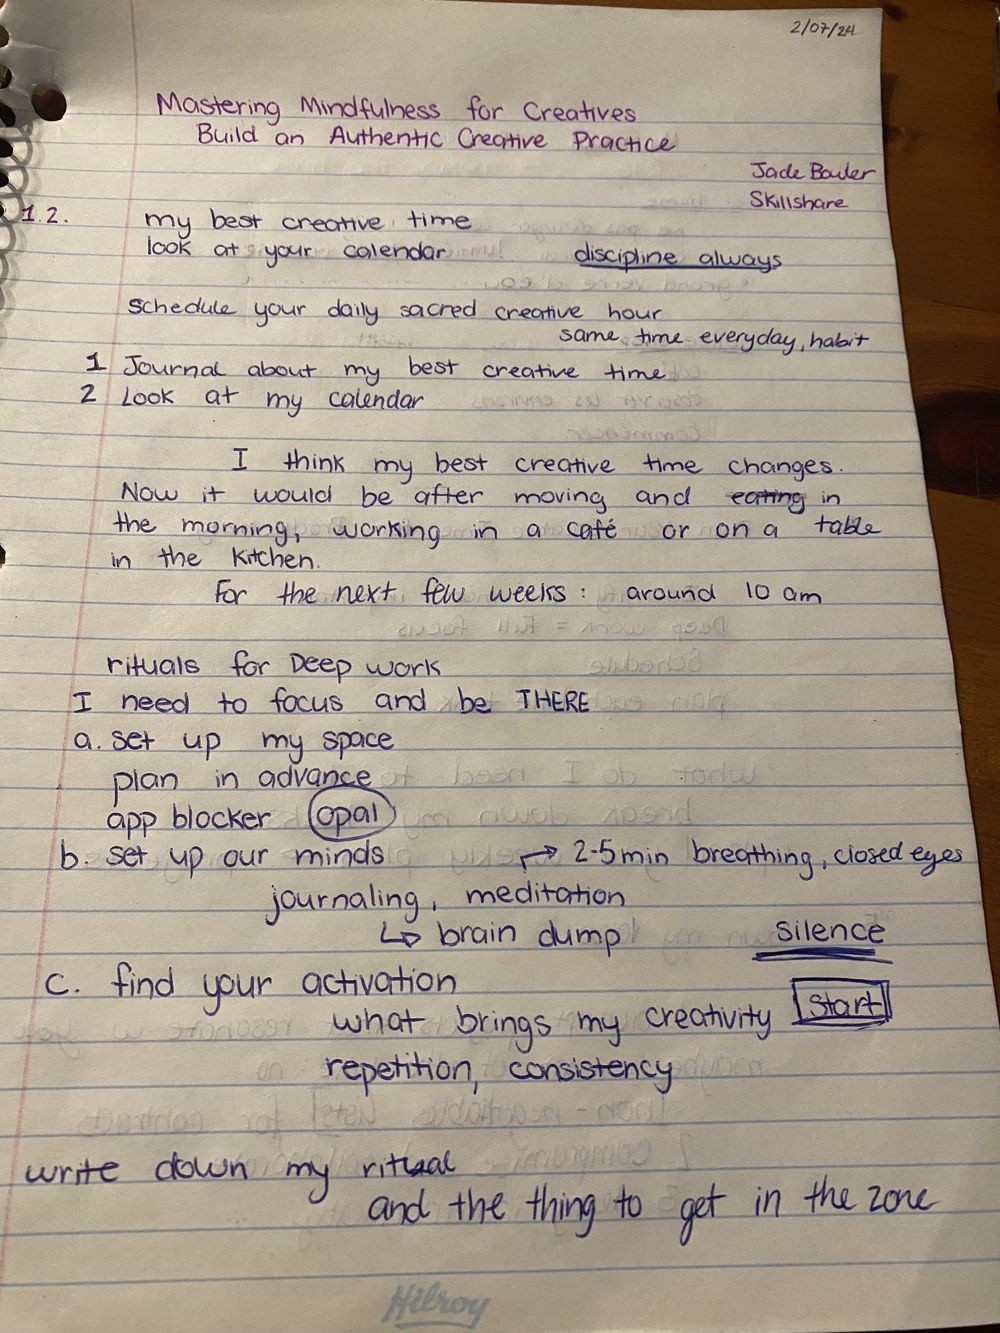 2/07/24
Mastering Mindfulness for Creatives
Build an Authentic Creative Practice
Jade Bowler
Skillshare
1.2.
my best creative time
look at your calendar
discipline always
schedule your daily sacred creative hour
same time everyday, habit
1 Journal about my best creative time
2 Look at my calendar
I think my best creative time changes.
Now it would be after moving and eating in
the morning, working in a café or on a table
in the kitchen.
For the next few weeks: around 10 am
rituals for Deep work
I need to focus and be THERE
a. set up my space
plan in advance
app blocker opal
b. set up our minds
↱ 2-5 min breathing, closed eyes
journaling, meditation
↳ brain dump
silence
c. find your activation
start
what brings my creativity
repetition, consistency
write down my ritual
and the thing to get in the zone
Hilroy